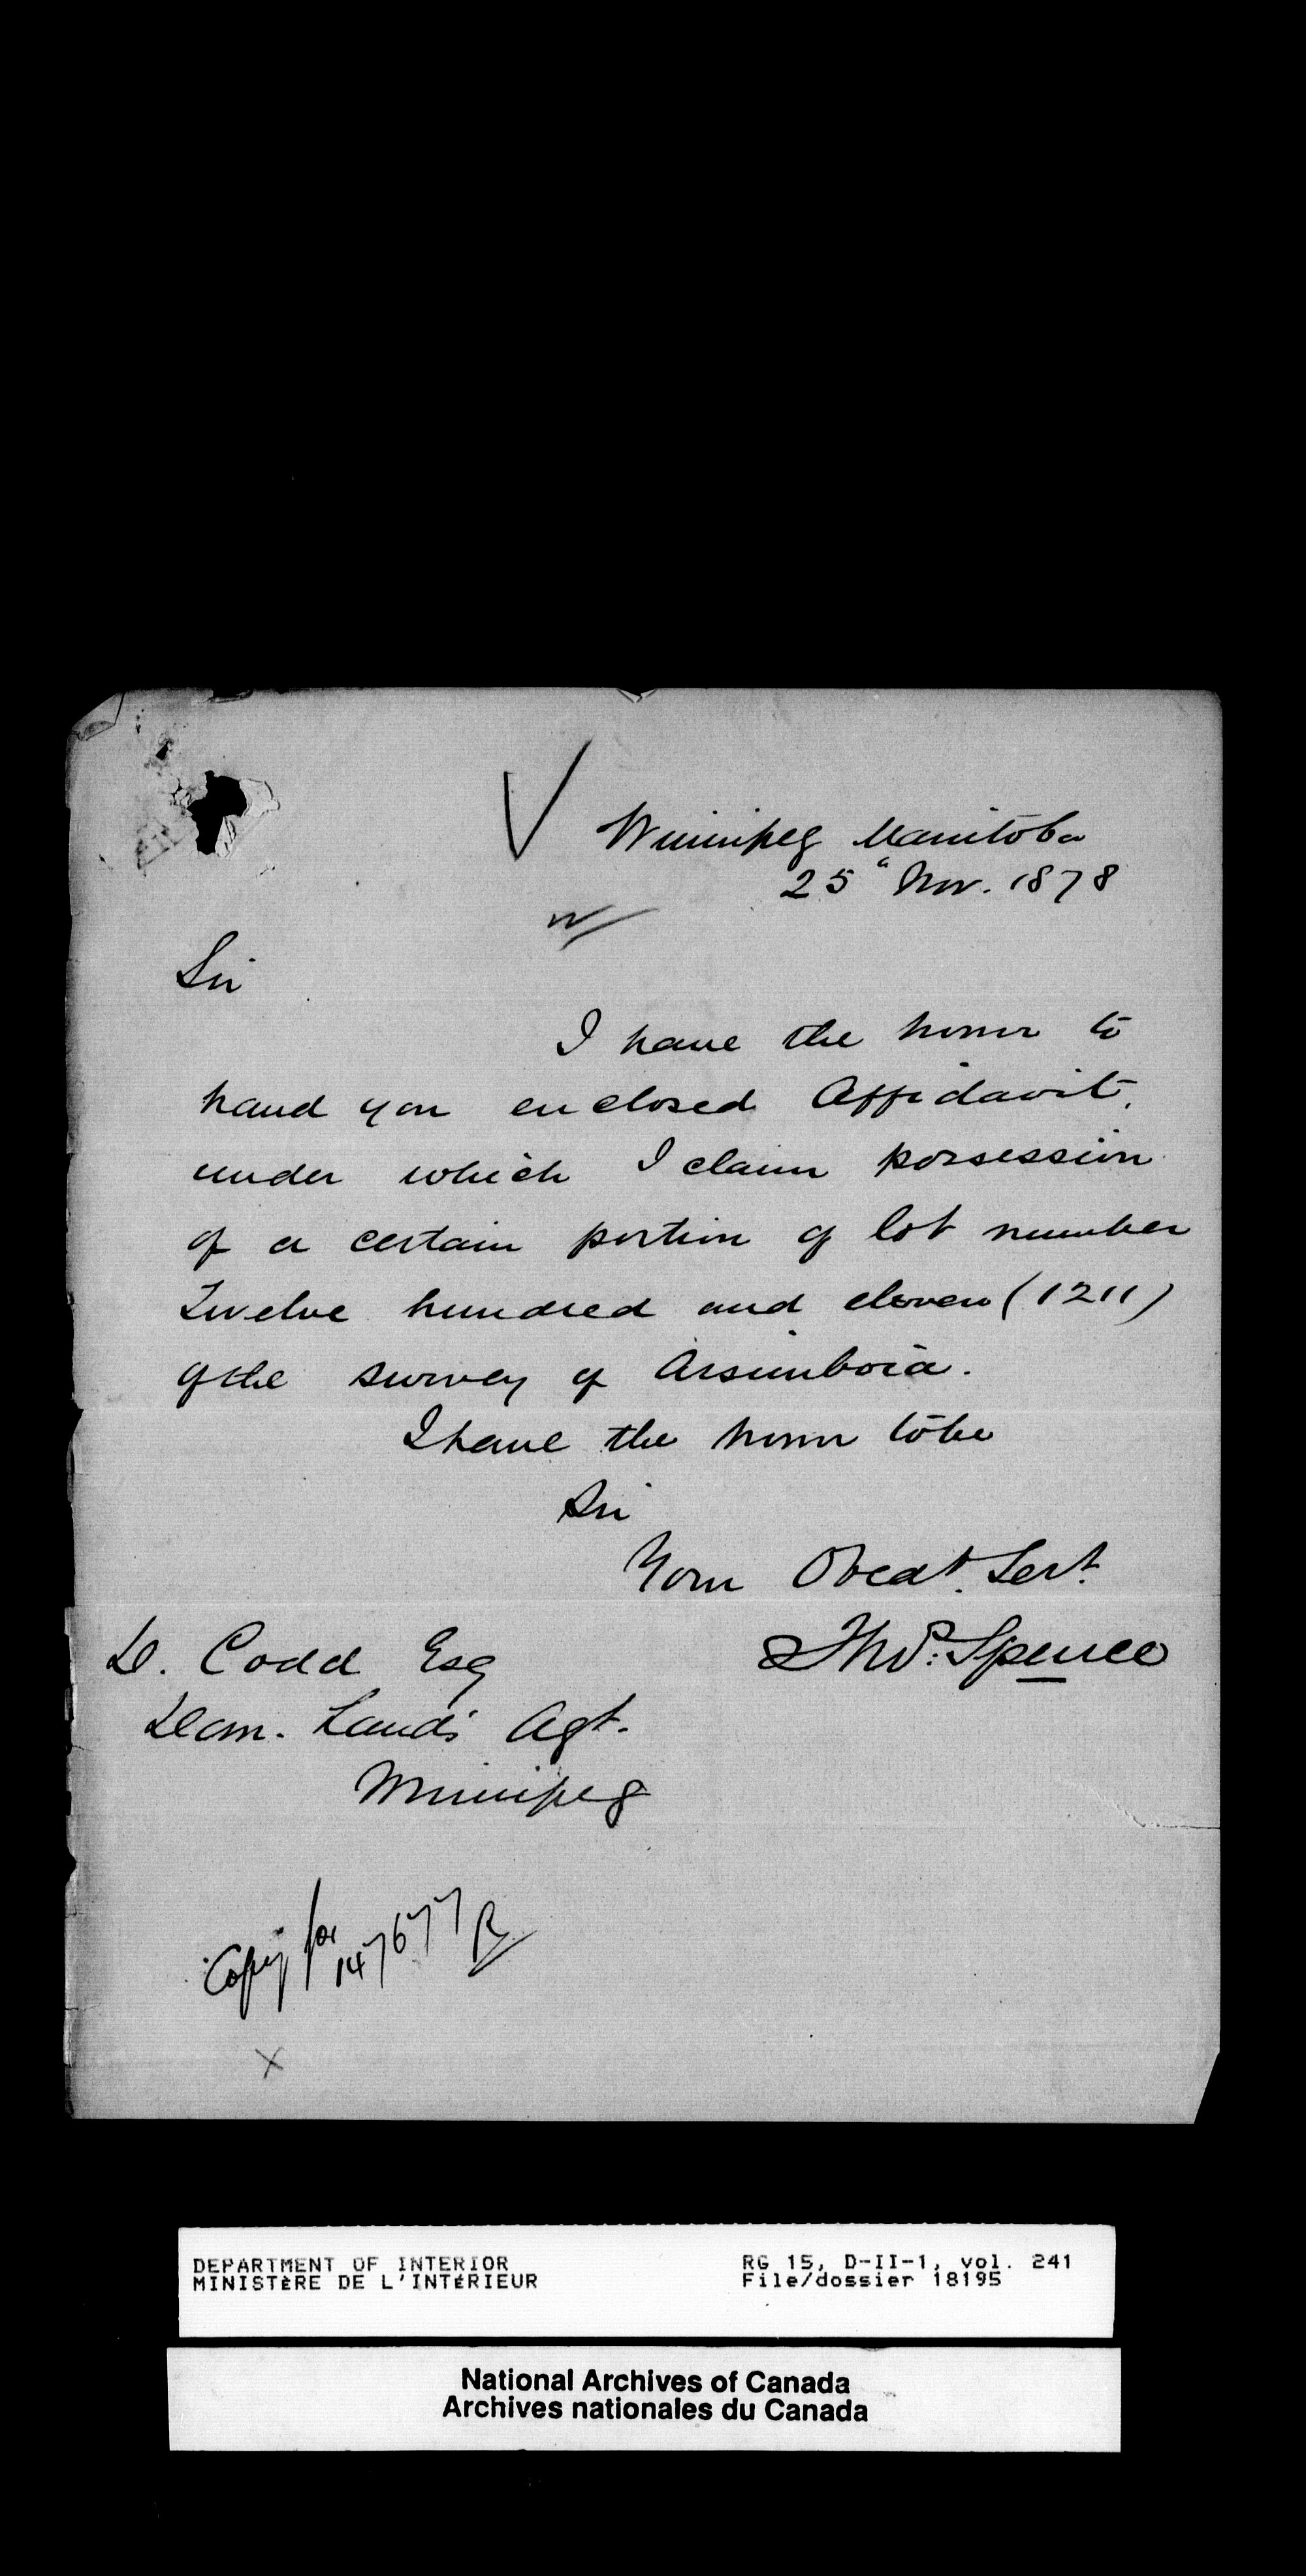 Winnipeg Manitoba
25" Nov. 1878
Sir
I have the honor to
hand you enclosed Affidavit,
under which I claim possession
of a certain portion of lot number
Twelve hundred and eleven (1211)
of the survey of Assiniboia.
I have the honor to be
Sir
Your Obedt. Sert.
Thos: Spence
D. Codd Esq
Dom. Lands Agt.
Winnipeg
Copy for
147677
DEPARTMENT OF INTERIOR
MINISTÈRE DE L'INTÉRIEUR
RG 15, D-II-1, vol. 241
File/dossier 18195
National Archives of Canada
Archives nationales du Canada